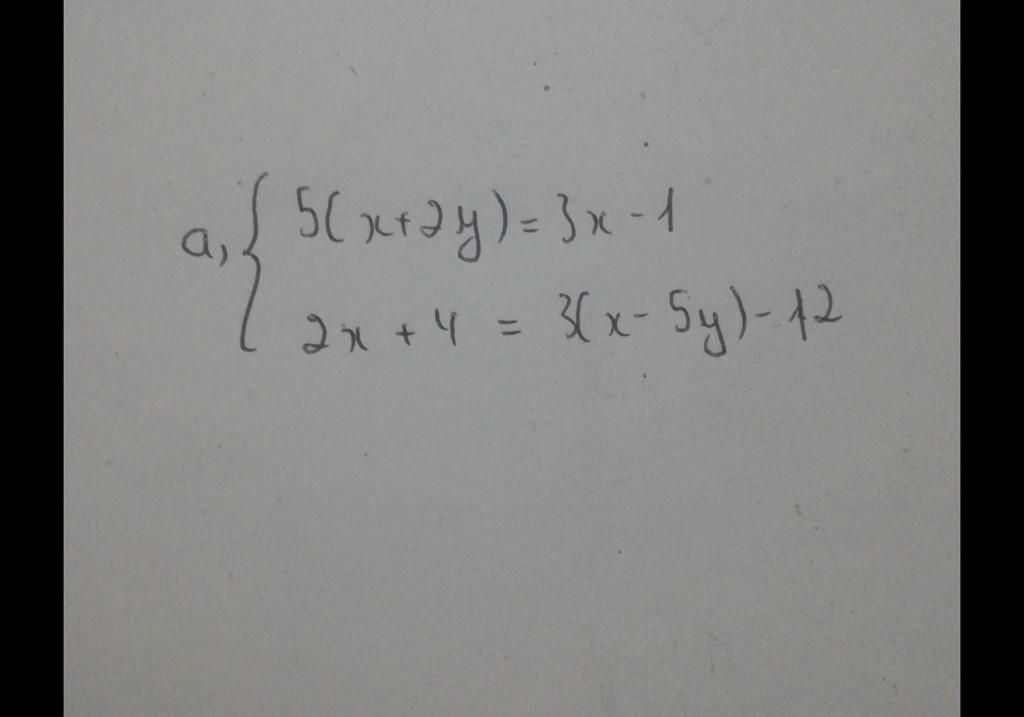 a, { 5(x+2y) = 3x - 1
2x + 4 = 3(x - 5y) - 12